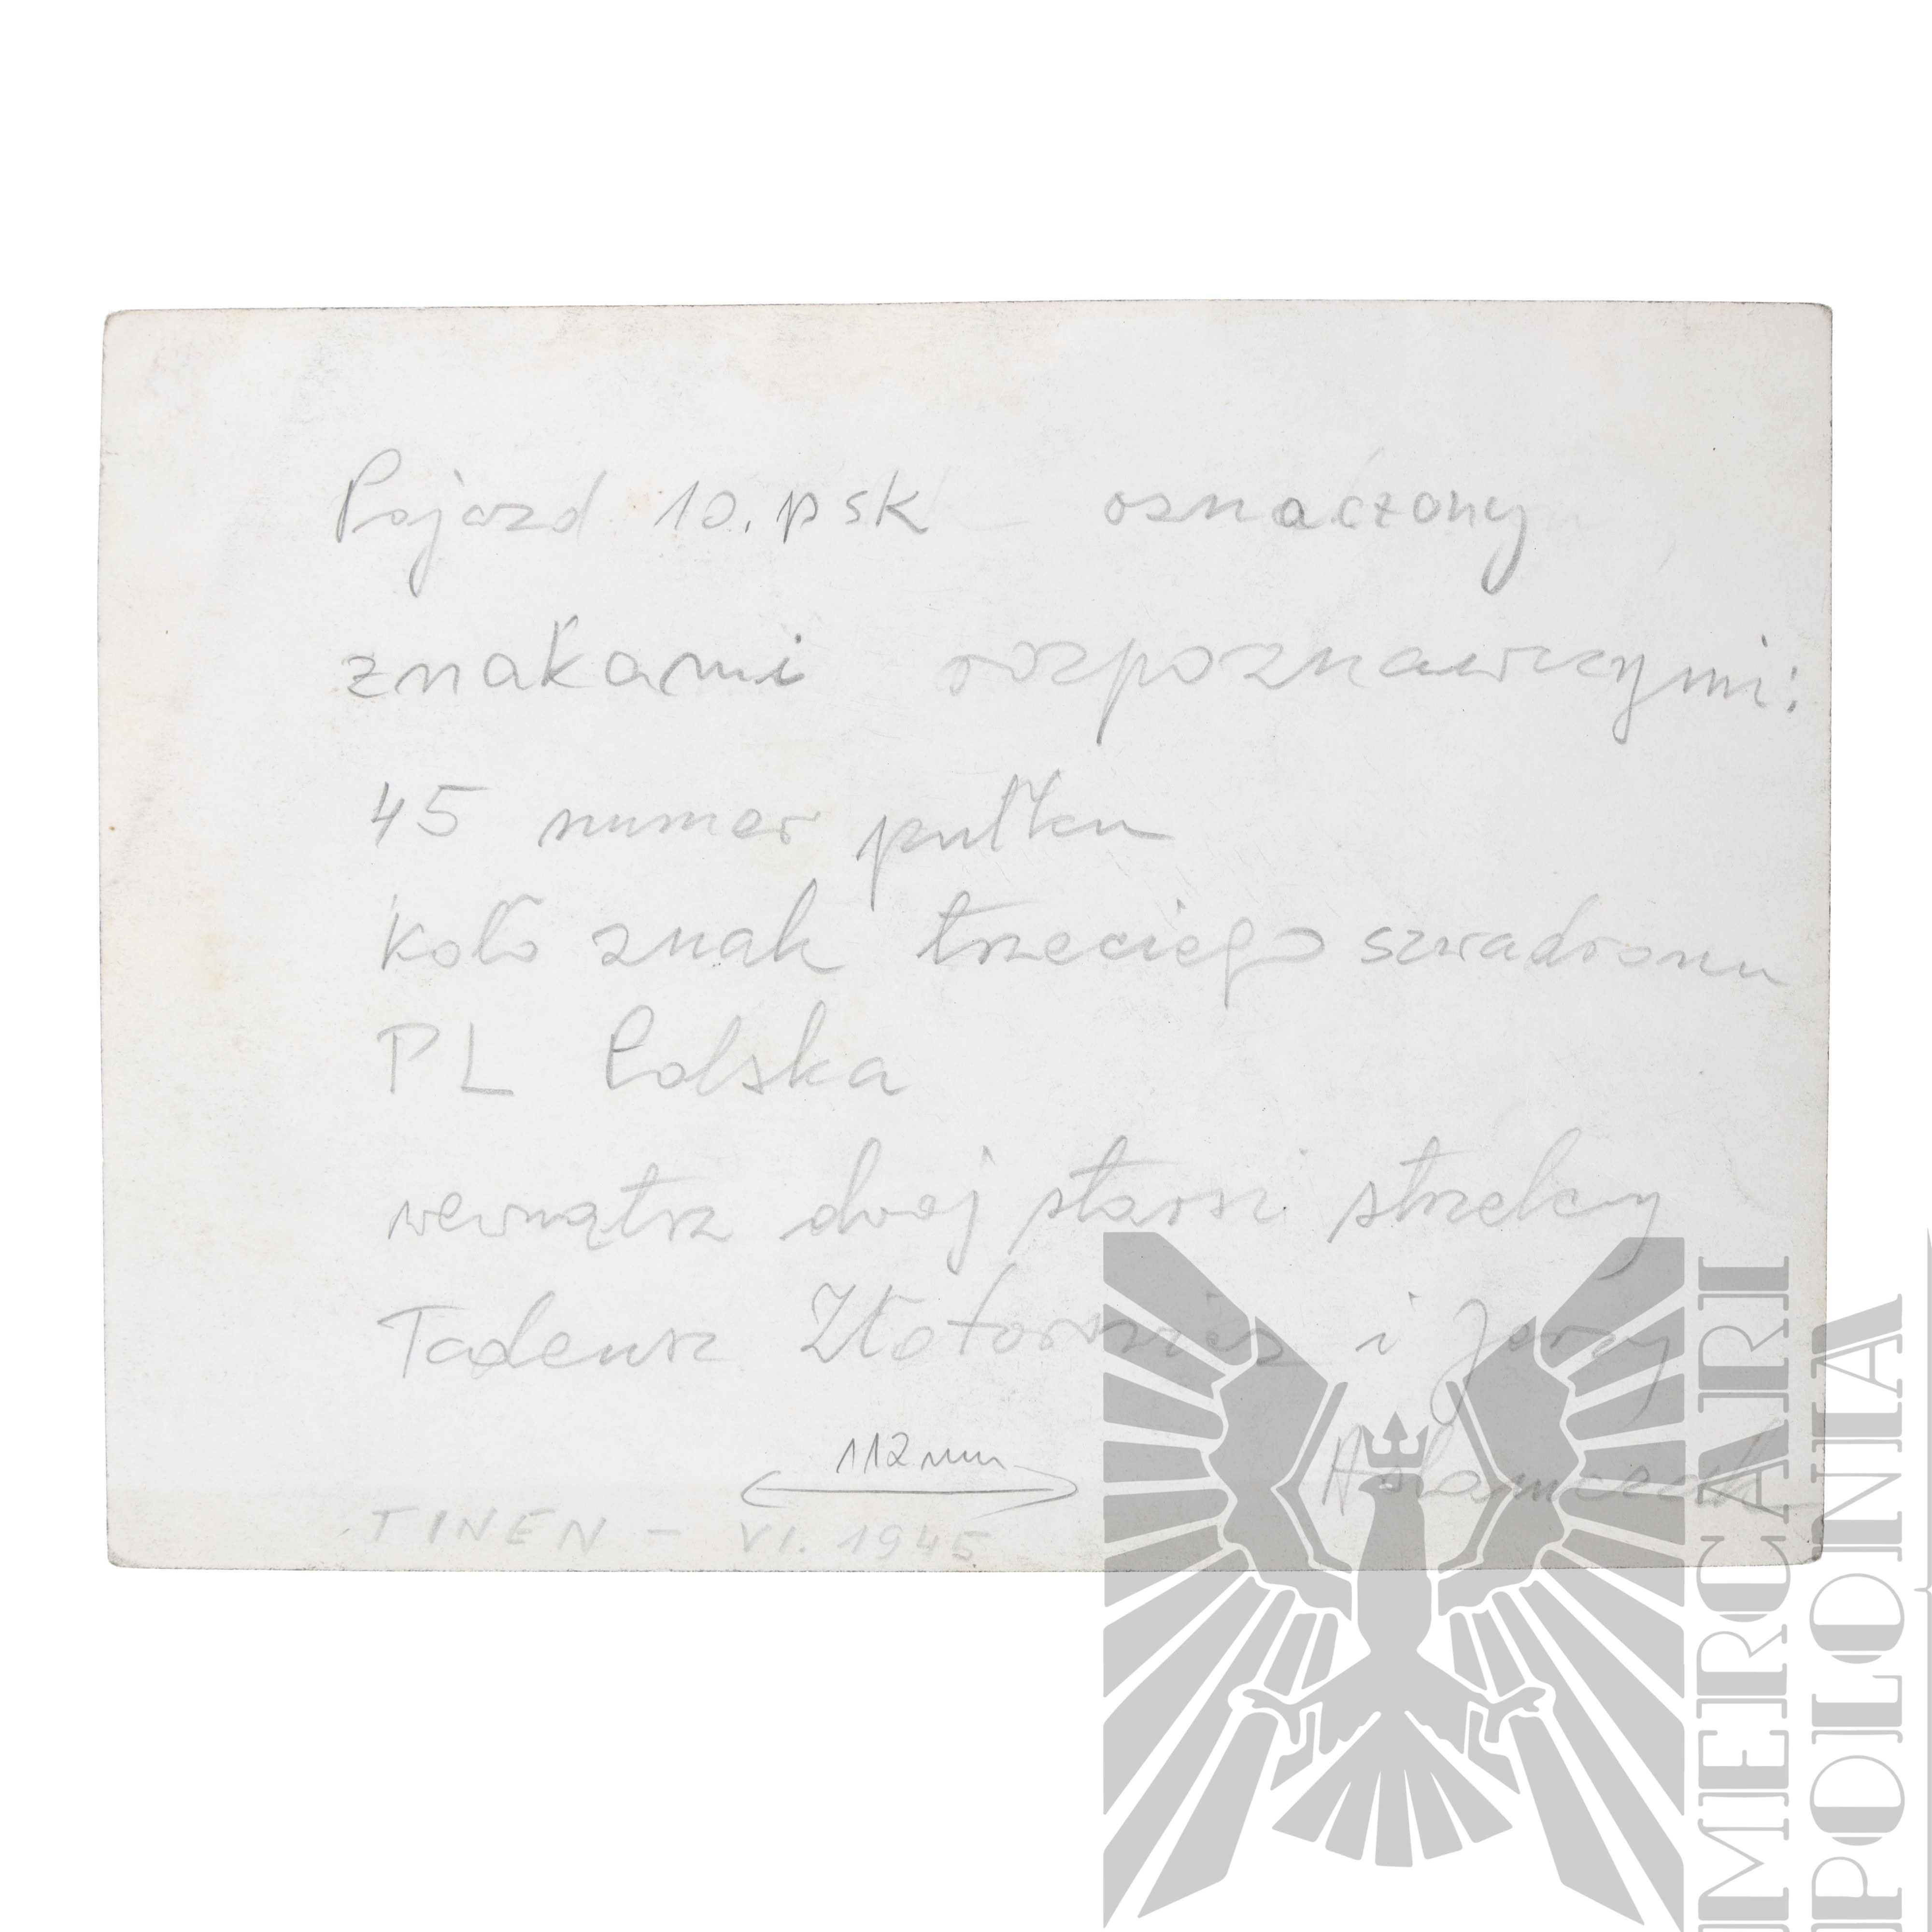 Pojazd 10. psk oznaczony
znakami rozpoznawczymi:
45 numer pułku
koło znak trzeciego szwadronu
PL Polska
wewnątrz dwaj starsi strzelcy
Tadeusz i Jerzy
112 mm
TINEN - VI. 1945
MERCARI
POLONIA